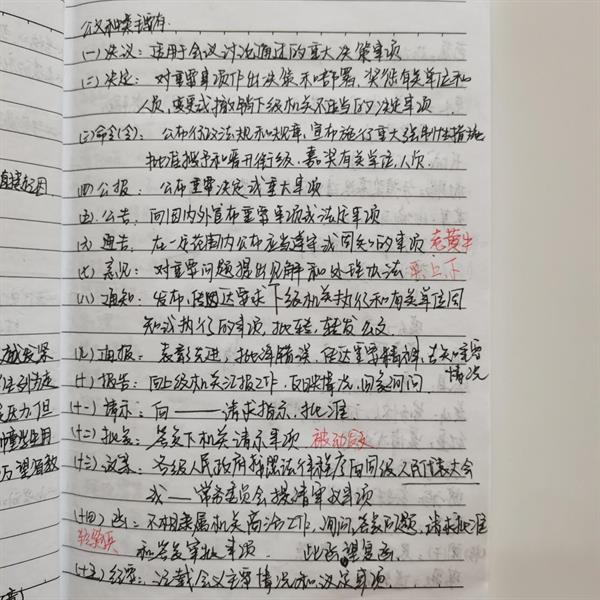 公文种类主要有
(一)决议：适用于会议讨论通过的重大决策事项
(二)决定：对重要事项作出决策和部署，奖惩有关单位和
人员，变更或撤销下级机关不适当的决定事项
(三)命令(令)：公布行政法规和规章，宣布施行重大强制性措施
批准授予和晋升衔级、嘉奖有关单位、人员
(四)公报：公布重要决定或重大事项
(五)公告：向国内外宣布重要事项或法定事项
(六)通告：在一定范围内公布应当遵守或周知的事项 老黄牛
(七)意见：对重要问题提出见解和处理办法 平上下
(八)通知：发布、传达要求下级机关执行和有关单位周
知或执行的事项，批转、转发公文
(九)通报：表彰先进，批评错误，传达重要精神，告知重要
情况
(十)报告：向上级机关汇报工作，反映情况，回复询问
(十一)请示：向——请求指示、批准
(十二)批复：答复下机关请示事项 被动
(十三)议案：各级人民政府按照法律程序向同级人民代表大会
或——常务委员会提请审议事项
(十四)函：不相隶属机关商洽工作，询问答复问题，请求批准
和答复审批事项. 此函望复函.
(十五)纪要：记载会议主要情况和议定事项.